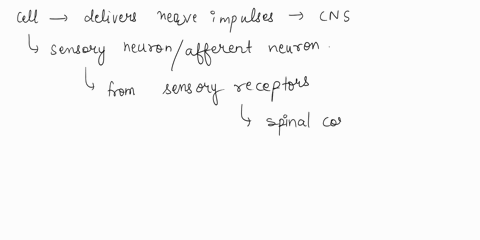 cell → delivers nerve impulses → CNS
↳ sensory neuron/afferent neuron.
↳ from sensory receptors
↳ spinal co